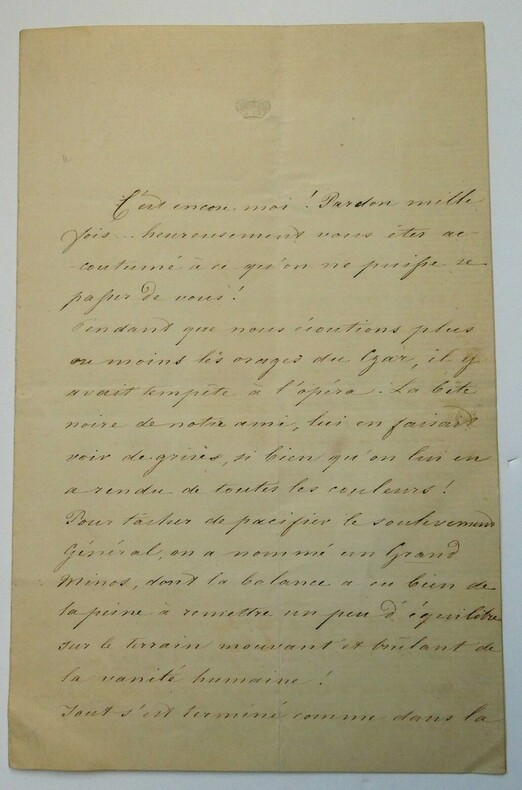 C'est encore moi ! Pardon mille
fois.. heureusement vous êtes ac-
coutumé à ce qu'on ne puisse se
passer de vous !
Pendant que nous écoutions plus
ou moins les orages du Czar, il y
avait tempête à l'opéra. La bête
noire de notre ami, lui en faisait
voir de grises, si bien qu'on lui en
a rendu de toutes les couleurs !
Pour tâcher de pacifier le soulevement
Général, on a nommé un Grand
Minos, dont la balance a eu bien de
la peine à remettre un peu d'équilibre
sur le terrain mouvant et brûlant de
la vanité humaine !
Tout s'est terminé comme dans la